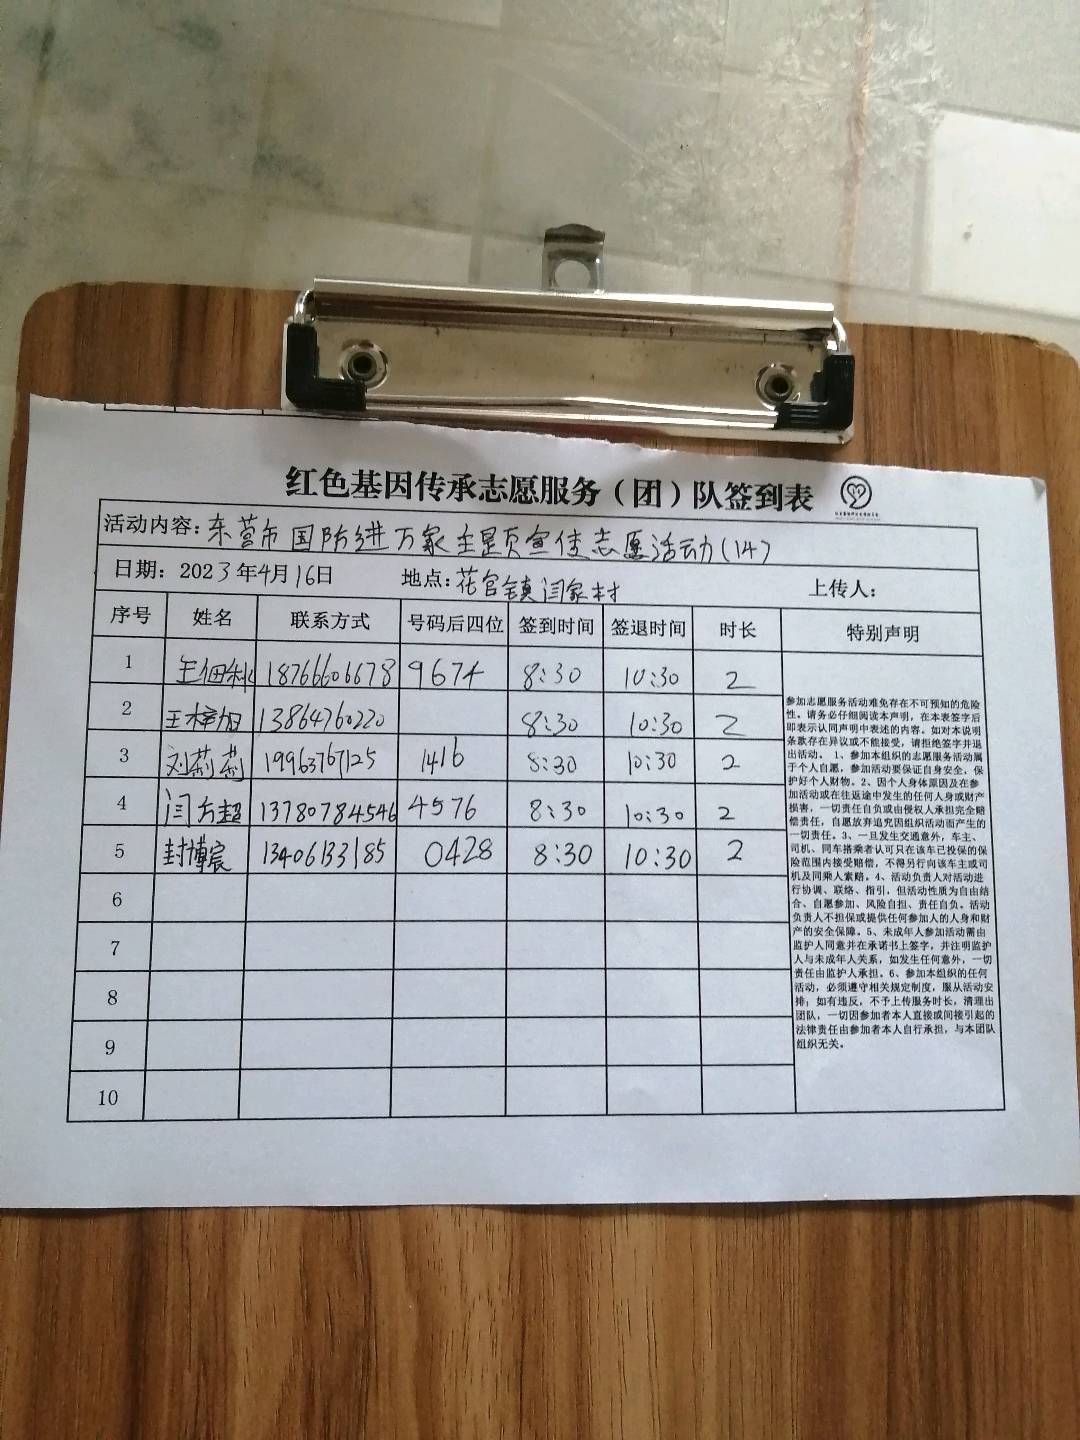 红色基因传承志愿服务（团）队签到表
活动内容：东营市国防进万家主题宣传志愿活动(14)
日期：2023年4月16日 地点：花官镇闫家村 上传人：
序号 姓名 联系方式 号码后四位 签到时间 签退时间 时长 特别声明
1 18766606678 9674 8:30 10:30 2
2 王梓旭 13864760220 8:30 10:30 2
3 刘莉莉 19963767125 1416 8:30 10:30 2
4 闫方超 13780784546 4576 8:30 10:30 2
5 封博宸 13406133185 0428 8:30 10:30 2
6
7
8
9
10
参加志愿服务活动难免存在不可预知的危险
性。请务必仔细阅读本声明，在本表签字后
即表示认同声明中表述的内容。如对本说明
条款存在异议或不能接受，请拒绝签字并退
出活动。 1、参加本组织的志愿服务活动属
于个人自愿，参加活动要保证自身安全，保
护好个人财物。2、因个人身体原因及在参
加活动或在往返途中发生的任何人身或财产
损害，一切责任自负或由侵权人承担完全赔
偿责任，自愿放弃追究因组织活动而产生的
一切责任。3、一旦发生交通意外，车主、
司机、同车搭乘者认可只在该车已投保的保
险范围内接受赔偿，不得另行向该车主或司
机及同乘人索赔。4、活动负责人对活动进
行协调、联络、指引，但活动性质为自由结
合、自愿参加、风险自担、责任自负。活动
负责人不担保或提供任何参加人的人身和财
产的安全保障。5、未成年人参加活动需由
监护人同意并在承诺书上签字，并注明监护
人与未成年人关系，如发生任何意外，一切
责任由监护人承担。6、参加本组织的任何
活动，必须遵守相关规定制度，服从活动安
排；如有违反，不予上传服务时长，清理出
团队，一切因参加者本人直接或间接引起的
法律责任由参加者本人自行承担，与本团队
组织无关。